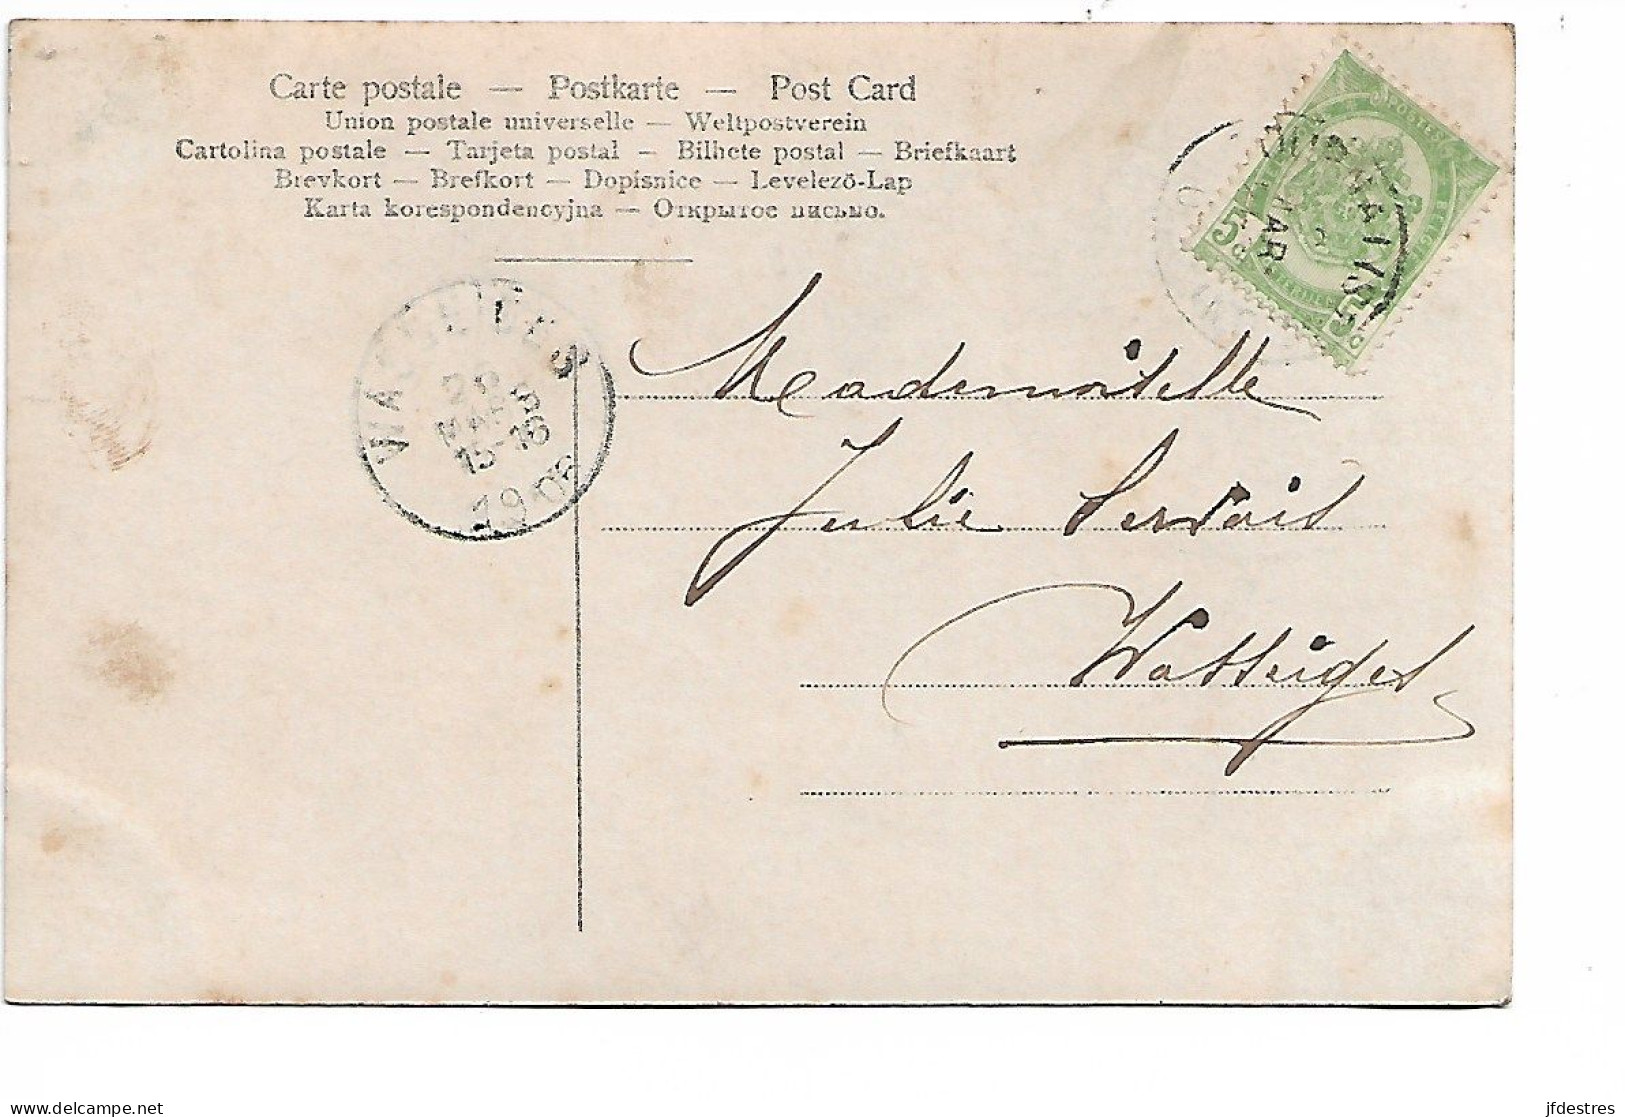 Carte postale — Postkarte — Post Card
Union postale universelle — Weltpostverein
Cartolina postale — Tarjeta postal — Bilhete postal — Briefkaart
Brevkort — Brefkort — Dopisnice — Levelező-Lap
Karta korespondencyjna — Открытое письмо.
POSTES
5c 5c
MAR
28
MARS
15-16
1906
Mademoiselle
Julie Servais
Wasseiges
delcampe.net
jfdestres